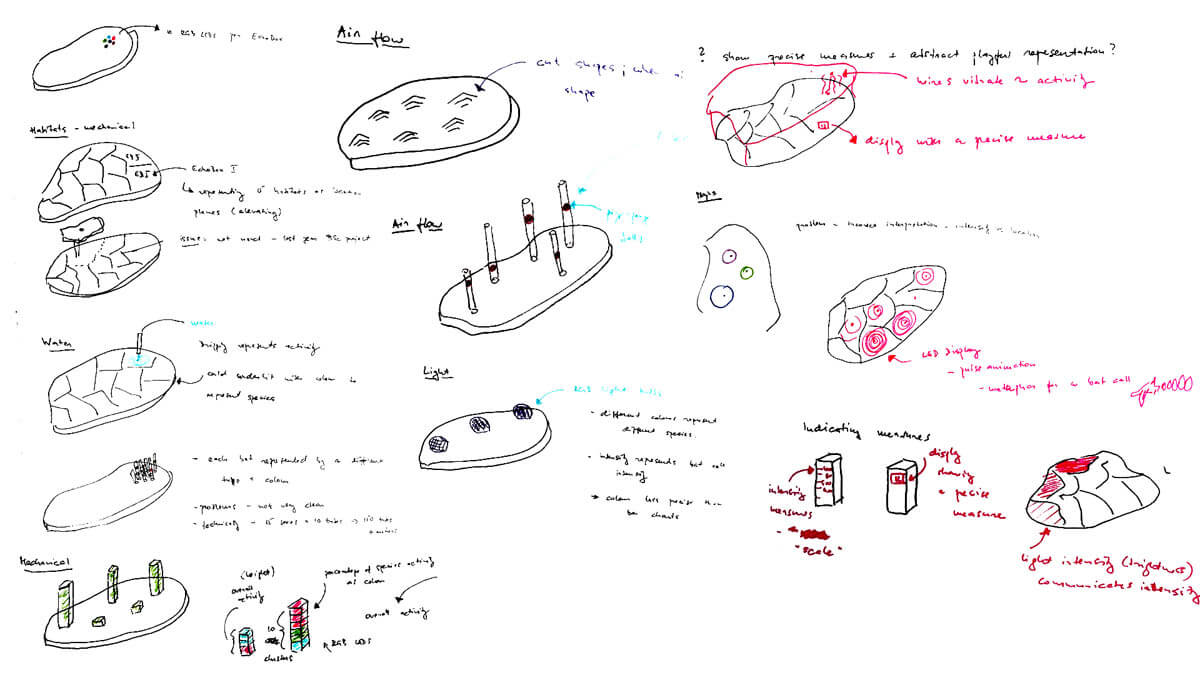 10 RGB LEDs per Echobox
Habitats - mechanical
Echobox I
↳ representing 15 habitats as
planes (elevating)
issue: not novel - lost from project
Water
water
Dripping represents activity
could underlit with colour to
represent species
- each bat represented by a different
tube + colour
- problems - not very clear
- technically - 15 zones × 10 tubes → 150 tubes
Mechanical
(height)
overall
activity
percentage of species activity
as colour
overall activity
10
RGB LEDs
clusters
Air flow
cut shapes; when
shape
Air flow
ping-pong
balls
Light
RGB light bulbs
- different colours represent
different species
- intensity represents bat call
intensity
→ colour less precise than
bar charts
? show precise measures + abstract playful representation?
wires vibrate ~ activity
display with a precise measure
Light
problem - incorrect interpretation - intensity ~ location
LED Display
- pulse animation
- metaphor for a bat call
Indicating measures
intensity
measures
- "scale"
display
showing
a precise
measure
light intensity (brightness)
communicates intensity